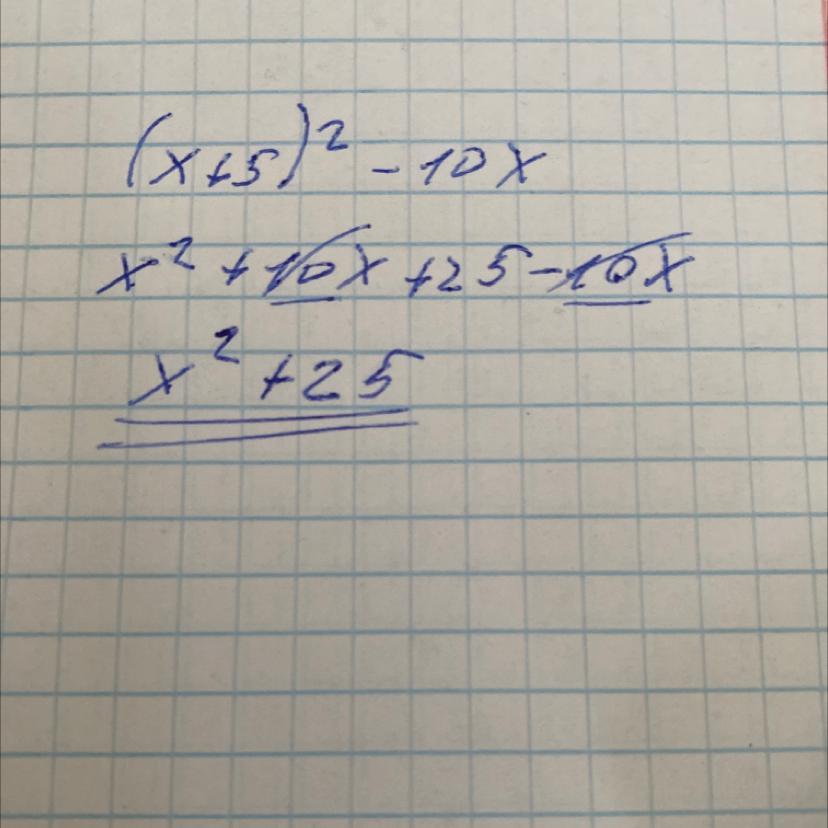 (x+5)² - 10x
x² + 10x + 25 - 10x
x² + 25